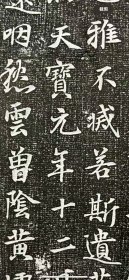 雅不 若斯遺
天寶元年十二
咽愁雲曾陰黃